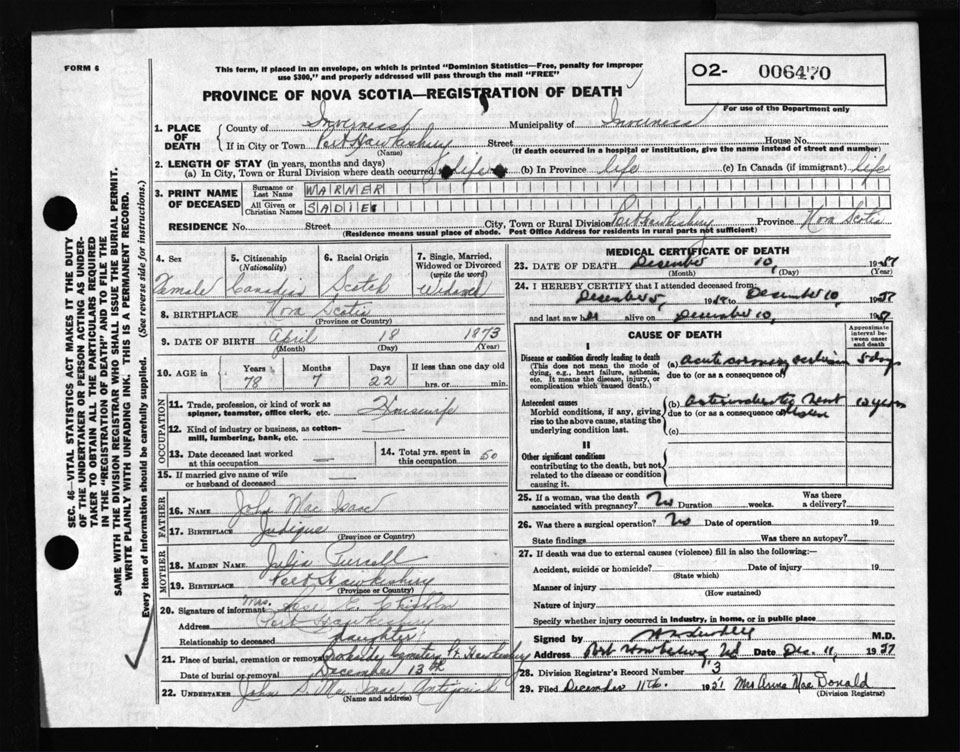 FORM 6
This form, if placed in an envelope, on which is printed "Dominion Statistics—Free, penalty for improper
use $300," and properly addressed will pass through the mail "FREE"
PROVINCE OF NOVA SCOTIA—REGISTRATION OF DEATH
O2- 006470
For use of the Department only
1. PLACE OF DEATH
County of Inverness Municipality of Inverness
If in City or Town Port Hawkesbury Street House No.
(Name) (If death occurred in a hospital or institution, give the name instead of street and number)
2. LENGTH OF STAY (in years, months and days)
(a) In City, Town or Rural Division where death occurred life (b) In Province life (c) In Canada (if immigrant) life
3. PRINT NAME OF DECEASED
Surname or Last Name WARNER
All Given or Christian Names SADIE
RESIDENCE No. Street City, Town or Rural Division Port Hawkesbury Province Nova Scotia
(Residence means usual place of abode. Post Office Address for residents in rural parts not sufficient)
4. Sex Female
5. Citizenship (Nationality) Canadian
6. Racial Origin Scotch
7. Single, Married, Widowed or Divorced (write the word) Widowed
8. BIRTHPLACE Nova Scotia
(Province or Country)
9. DATE OF BIRTH April 18 1873
(Month) (Day) (Year)
10. AGE in Years 78 Months 7 Days 22 If less than one day old hrs. or min.
OCCUPATION
11. Trade, profession, or kind of work as spinner, teamster, office clerk, etc. Housewife
12. Kind of industry or business, as cotton-mill, lumbering, bank, etc.
13. Date deceased last worked at this occupation
14. Total yrs. spent in this occupation 50
15. If married give name of wife or husband of deceased
FATHER
16. NAME John Mac Isaac
17. BIRTHPLACE Judique
(Province or Country)
MOTHER
18. MAIDEN NAME Julia Pursell
19. BIRTHPLACE Port Hawkesbury
(Province or Country)
20. Signature of informant Mrs. E. Chisholm
Address Port Hawkesbury
Relationship to deceased daughter
21. Place of burial, cremation or removal Cemetery Pt. Hawkesbury
Date of burial or removal December 13th
22. UNDERTAKER John D. Mac Antigonish
(Name and address)
MEDICAL CERTIFICATE OF DEATH
23. DATE OF DEATH December 10 1951
(Month) (Day) (Year)
24. I HEREBY CERTIFY that I attended deceased from:
December 5, 1951 to December 10, 1951
and last saw her alive on December 10, 1951
CAUSE OF DEATH
Approximate interval between onset and death
I
Disease or condition directly leading to death
(This does not mean the mode of dying, e.g., heart failure, asthenia, etc. It means the disease, injury, or complication which caused death.)
(a) acute coronary 5 days
due to (or as a consequence of)
Antecedent causes
Morbid conditions, if any, giving rise to the above cause, stating the underlying condition last.
(b) heart disease years
due to (or as a consequence of)
(c)
II
Other significant conditions
contributing to the death, but not related to the disease or condition causing it.
25. If a woman, was the death associated with pregnancy? No Duration weeks. Was there a delivery?
26. Was there a surgical operation? No Date of operation 19
State findings Was there an autopsy?
27. If death was due to external causes (violence) fill in also the following:—
Accident, suicide or homicide? Date of injury 19
(State which)
Manner of injury
(How sustained)
Nature of injury
Specify whether injury occurred in industry, in home, or in public place
Signed by M.D.
Address Port Hawkesbury Date Dec. 11, 1951
28. Division Registrar's Record Number 13
29. Filed December 11th. 1951 Mrs Anna Mac Donald
(Division Registrar)
SEC. 46—VITAL STATISTICS ACT MAKES IT THE DUTY
OF THE UNDERTAKER OR PERSON ACTING AS UNDER-
TAKER TO OBTAIN ALL THE PARTICULARS REQUIRED
IN THE "REGISTRATION OF DEATH" AND TO FILE THE
SAME WITH THE DIVISION REGISTRAR WHO SHALL ISSUE THE BURIAL PERMIT.
WRITE PLAINLY WITH UNFADING INK. THIS IS A PERMANENT RECORD.
Every item of information should be carefully supplied. (See reverse side for instructions.)